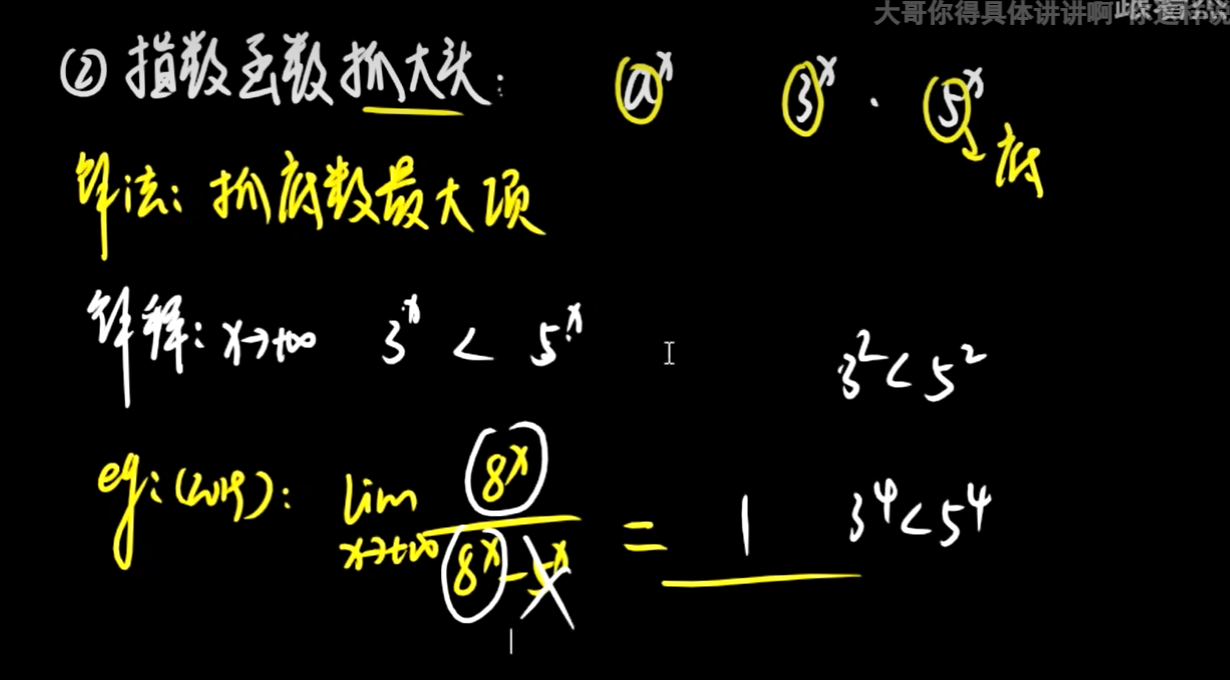 大哥你得具体讲讲啊
② 指数函数抓大头: aˣ 3ˣ · 5ˣ
底
解法: 抓底数最大项
解释: x→+∞ 3ˣ < 5ˣ
3² < 5²
eg: (2019): lim x→+∞ 8ˣ / (8ˣ - 5ˣ) = 1
3⁴ < 5⁴